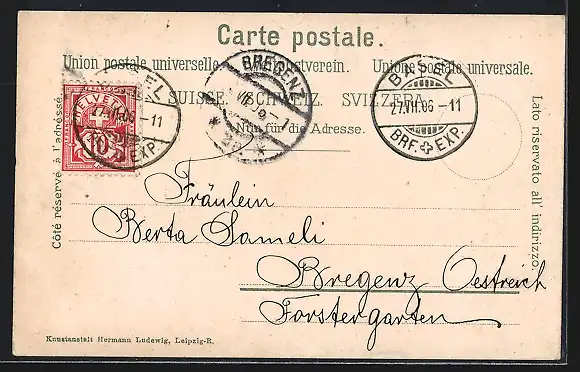 Carte postale.
Union postale universelle. Weltpostverein. Unione postale universale.
SUISSE. SCHWEIZ. SVIZZERA.
Nur für die Adresse.
Côté réservé à l'adresse.
Lato riservato all' indirizzo.
HELVETIA
10
BASEL
27.VII.06-11
BRF. EXP.
BREGENZ
VII
BASEL
27.VII.06-11
BRF. EXP.
Fräulein
Berta Sameli
Bregenz Oestreich
Forstergarten
Kunstanstalt Hermann Ludewig, Leipzig-R.